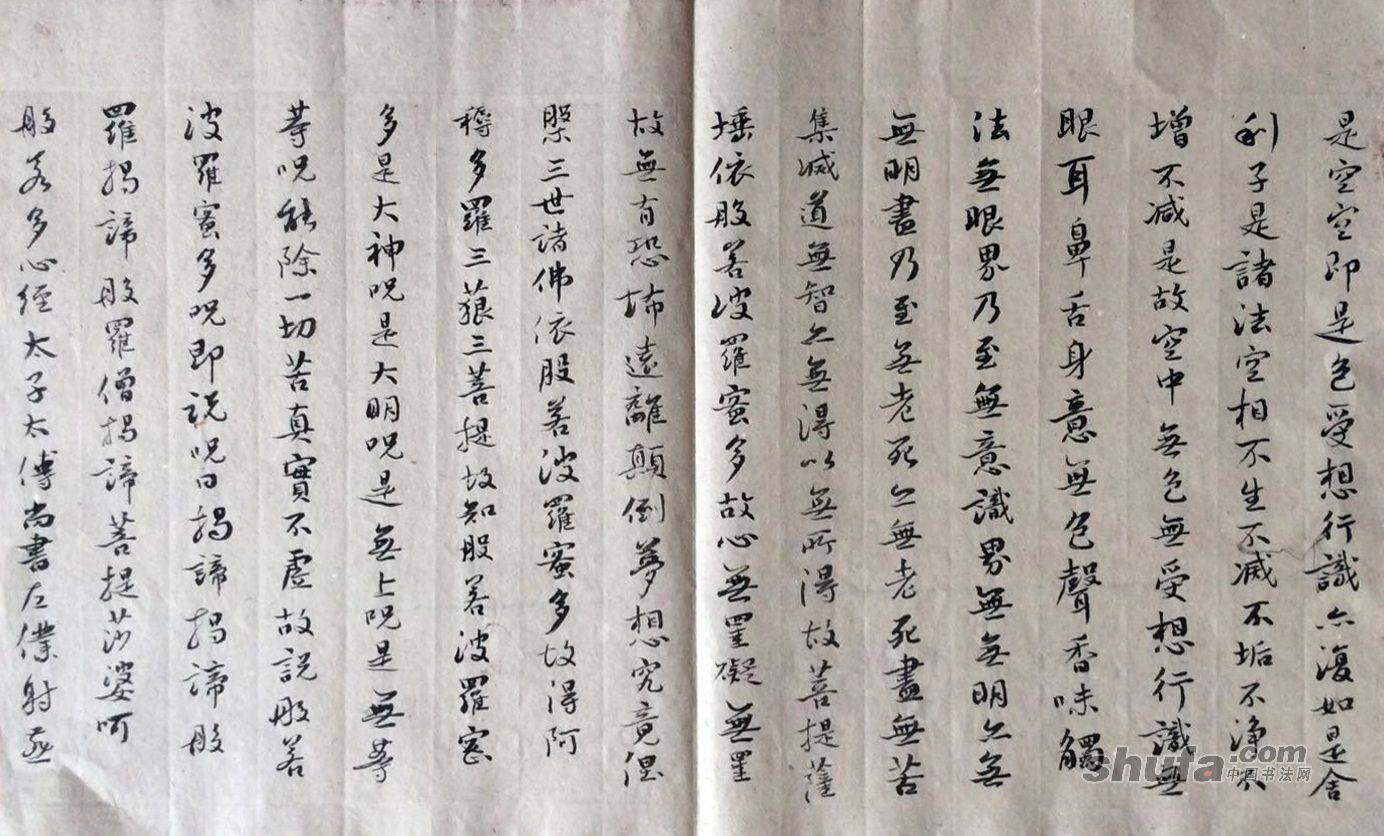 是空空即是色受想行識亦復如是舍
利子是諸法空相不生不滅不垢不淨不
增不減是故空中無色無受想行識無
眼耳鼻舌身意無色聲香味觸
法無眼界乃至無意識界無無明亦無
無明盡乃至無老死亦無老死盡無苦
集滅道無智亦無得以無所得故菩提薩
埵依般若波羅蜜多故心無罣礙無罣
故無有恐怖遠離顛倒夢想究竟涅
槃三世諸佛依般若波羅蜜多故得阿
耨多羅三藐三菩提故知般若波羅蜜
多是大神咒是大明咒是無上咒是無等
等咒能除一切苦真實不虛故說般若
波羅蜜多咒即說咒曰揭諦揭諦般
羅揭諦般羅僧揭諦菩提莎婆呵
般若多心經太子太傅尚書左僕射
shufa.com
中国书法网